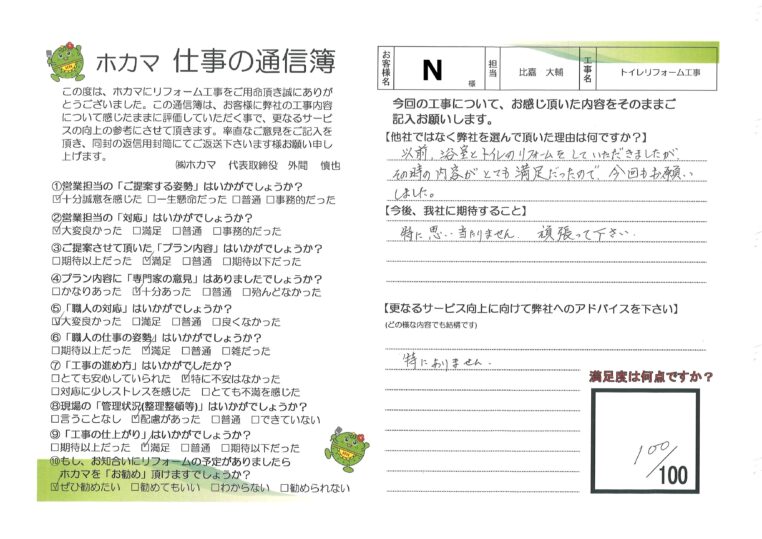 ホカマ 仕事の通信簿
この度は、ホカマにリフォーム工事をご用命頂き誠にありが
とうございました。この通信簿は、お客様に弊社の工事内容
について感じたままに評価していただく事で、更なるサービ
スの向上の参考にさせて頂きます。率直なご意見をご記入を
頂き、同封の返信用封筒にてご返送下さいます様お願い申し
上げます。
㈱ホカマ 代表取締役 外間 慎也
①営業担当の「ご提案する姿勢」はいかがでしょうか?
☑十分誠意を感じた □一生懸命だった □普通 □事務的だった
②営業担当の「対応」はいかがでしょうか?
☑大変良かった □満足 □普通 □事務的だった
③ご提案させて頂いた「プラン内容」はいかがでしょうか?
□期待以上だった ☑満足 □普通 □期待以下だった
④プラン内容に「専門家の意見」はありましたでしょうか?
□かなりあった ☑十分あった □普通 □殆んどなかった
⑤「職人の対応」はいかがでしょうか?
☑大変良かった □満足 □普通 □良くなかった
⑥「職人の仕事の姿勢」はいかがでしょうか?
□期待以上だった ☑満足 □普通 □雑だった
⑦「工事の進め方」はいかがでしたか?
□とても安心していられた ☑特に不安はなかった
□対応に少しストレスを感じた □とても不満を感じた
⑧現場の「管理状況(整理整頓等)」はいかがでしょうか?
□言うことなし ☑配慮があった □普通 □できていない
⑨「工事の仕上がり」はいかがでしょうか?
□期待以上だった ☑満足 □普通 □期待以下だった
⑩もし、お知合いにリフォームの予定がありましたら
ホカマを「お勧め」頂けますでしょうか?
☑ぜひ勧めたい □勧めてもいい □わからない □勧められない
お客様名 N 様 担当 比嘉 大輔 工事名 トイレリフォーム工事
今回の工事について、お感じ頂いた内容をそのままご
記入お願いします。
【他社ではなく弊社を選んで頂いた理由は何ですか?】
以前、浴室とトイレのリフォームをしていただきましたが、
その時の内容がとても満足だったので今回もお願い
しました。
【今後、我社に期待すること】
特に思い当たりません。頑張って下さい。
【更なるサービス向上に向けて弊社へのアドバイスを下さい】
(どの様な内容でも結構です)
特にありません。
満足度は何点ですか?
100/100